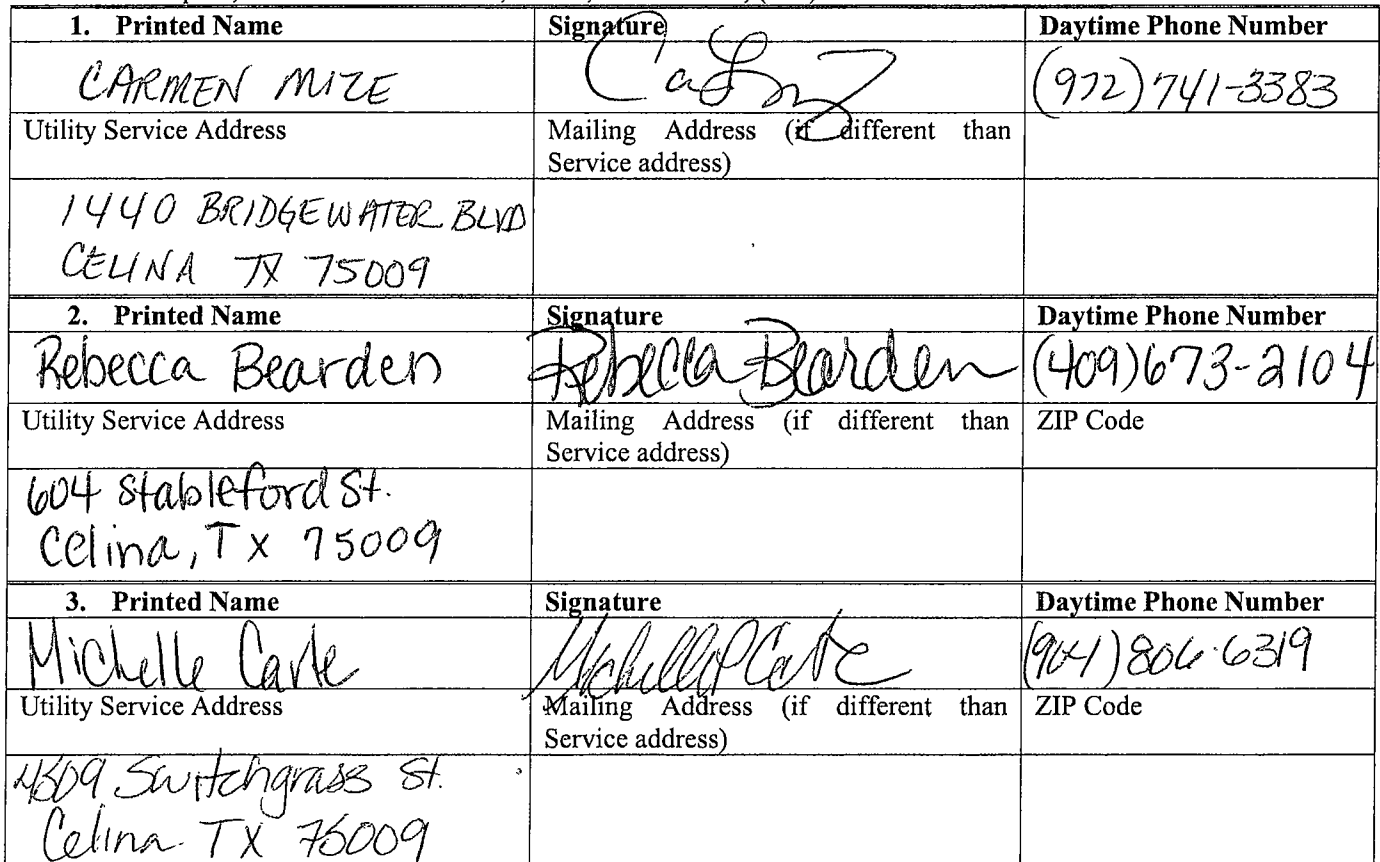 1. Printed Name Signature Daytime Phone Number
CARMEN MIZE (972) 741-3383
Utility Service Address Mailing Address (if different than Service address)
1440 BRIDGEWATER BLVD
CELINA TX 75009
2. Printed Name Signature Daytime Phone Number
Rebecca Bearden Rebecca Bearden (409) 673-2104
Utility Service Address Mailing Address (if different than Service address) ZIP Code
604 Stableford St.
Celina, Tx 75009
3. Printed Name Signature Daytime Phone Number
Michelle (904) 806-6319
Utility Service Address Mailing Address (if different than Service address) ZIP Code
4309 Switchgrass St.
Celina TX 75009